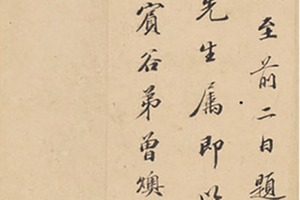 至前二日題
先生属即以
賓谷弟曾燠